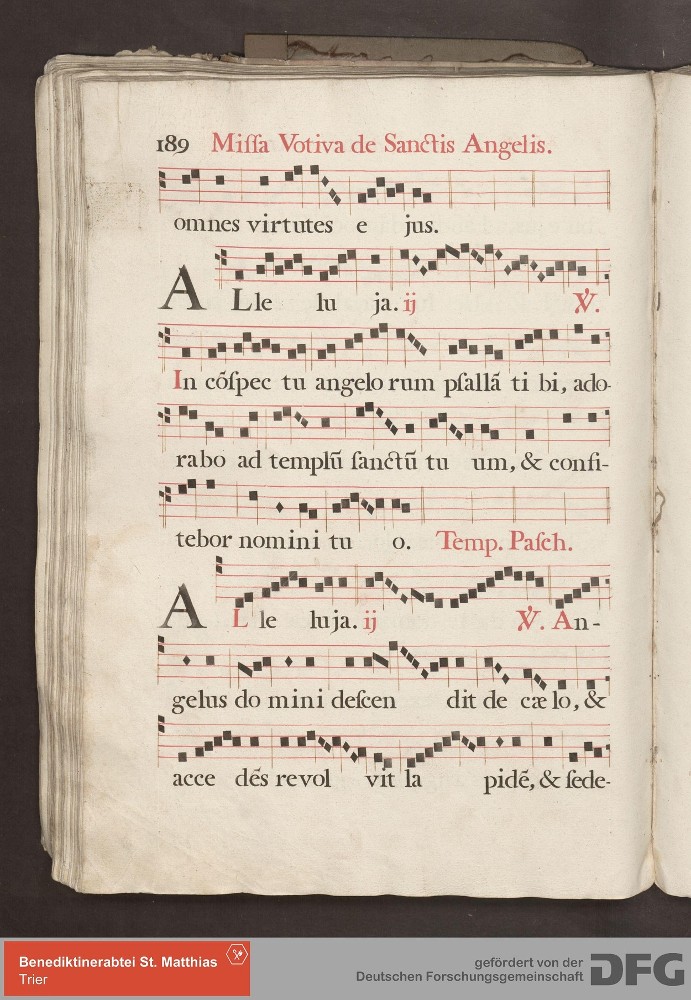 189 Miſſa Votiva de Sanctis Angelis.
omnes virtutes e jus.
ALle lu ja. ij ℣.
In cõſpec tu angelo rum pſallã ti bi, ado-
rabo ad templũ ſanctũ tu um, & confi-
tebor nomini tu o. Temp. Paſch.
AL le luja. ij ℣. An-
gelus do mini deſcen dit de cælo, &
acce dẽs revol vit la pidẽ, & ſede-
Benediktinerabtei St. Matthias
Trier
gefördert von der
Deutschen Forschungsgemeinschaft DFG